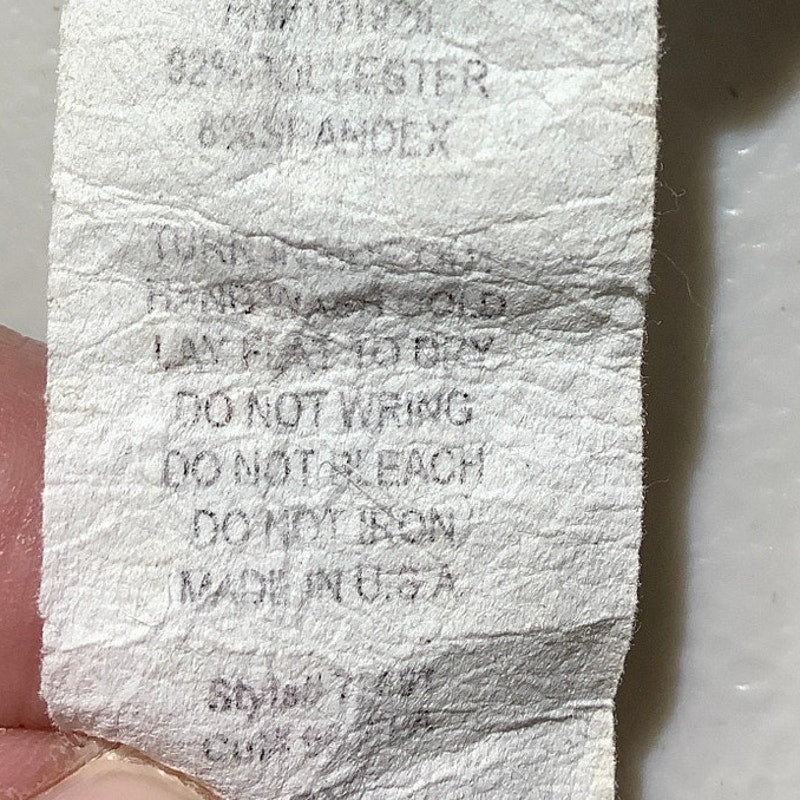 92% POLYESTER
8% SPANDEX
TURN INSIDE OUT
HAND WASH COLD
LAY FLAT TO DRY
DO NOT WRING
DO NOT BLEACH
DO NOT IRON
MADE IN U.S.A
Style#
Cut#